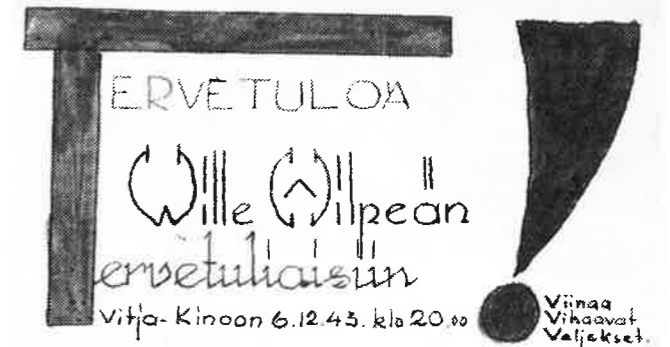 TERVETULOA
Wille Wilpeän
Tervetuliaisiin
Vitja-Kinoon 6.12.43. klo 20.00
!
Viinaa
Vihaavat
Veljekset.